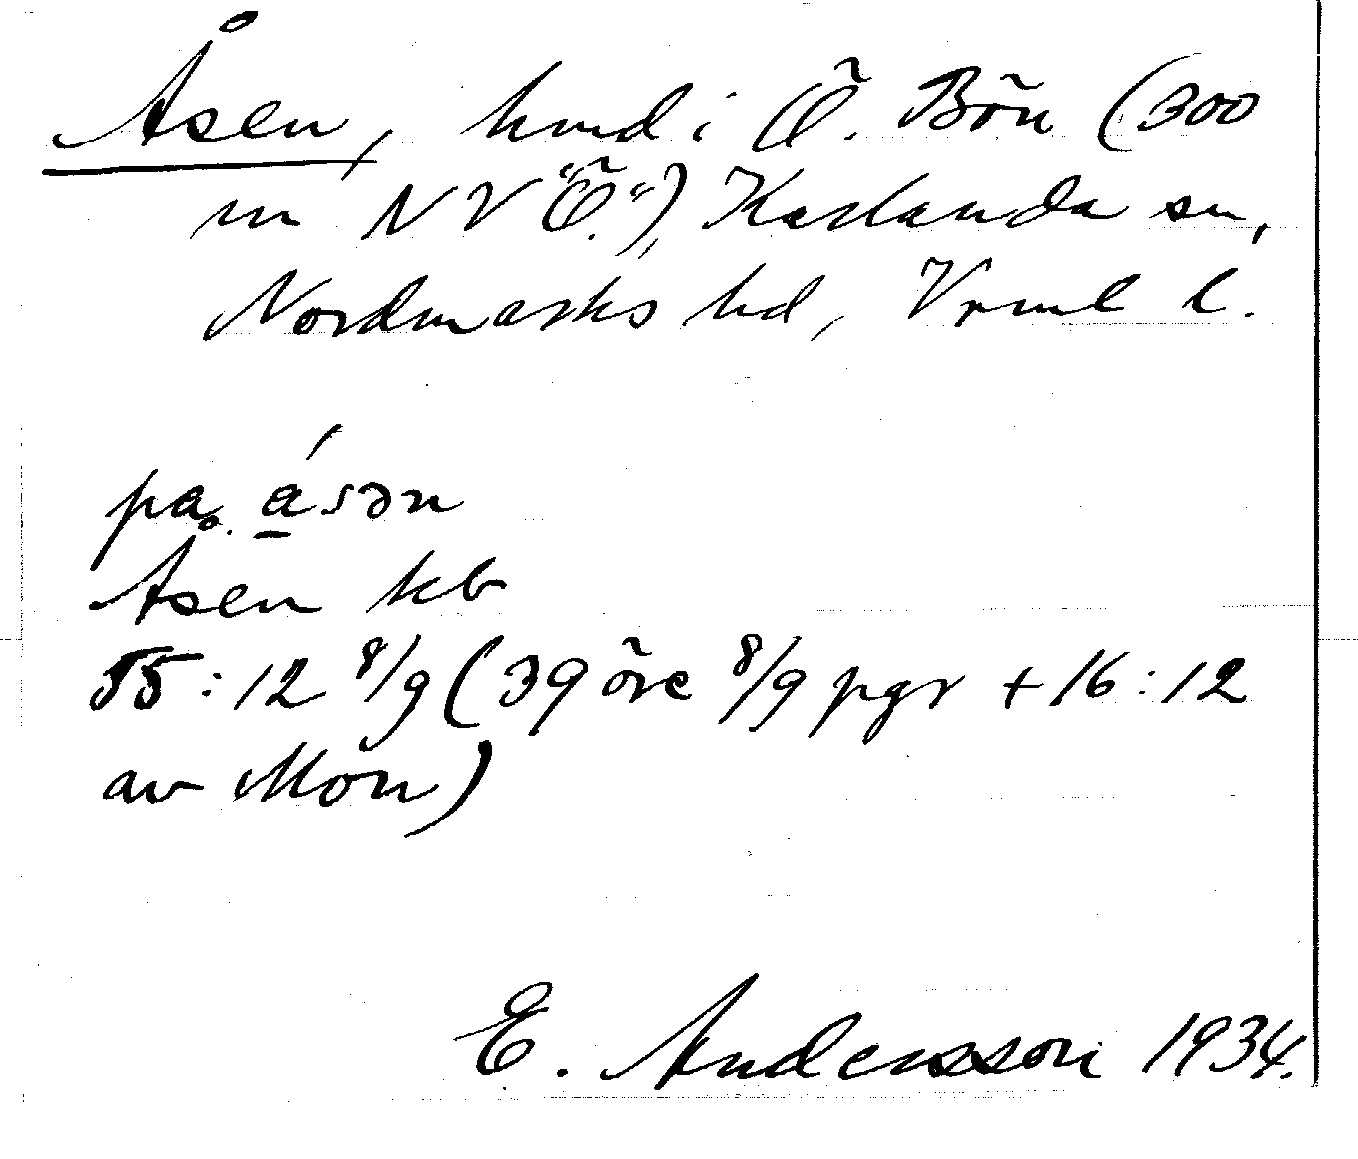 Åsen, hmd i Ö. Bön (300
m NV "Ö."), Karlanda sn,
Nordmarks hd, Vrml l.
på. á̱sən
Åsen kb
55:12 8/9 (39 öre 8/9 pgr + 16:12
av Mon)
E. Andersson 1934.